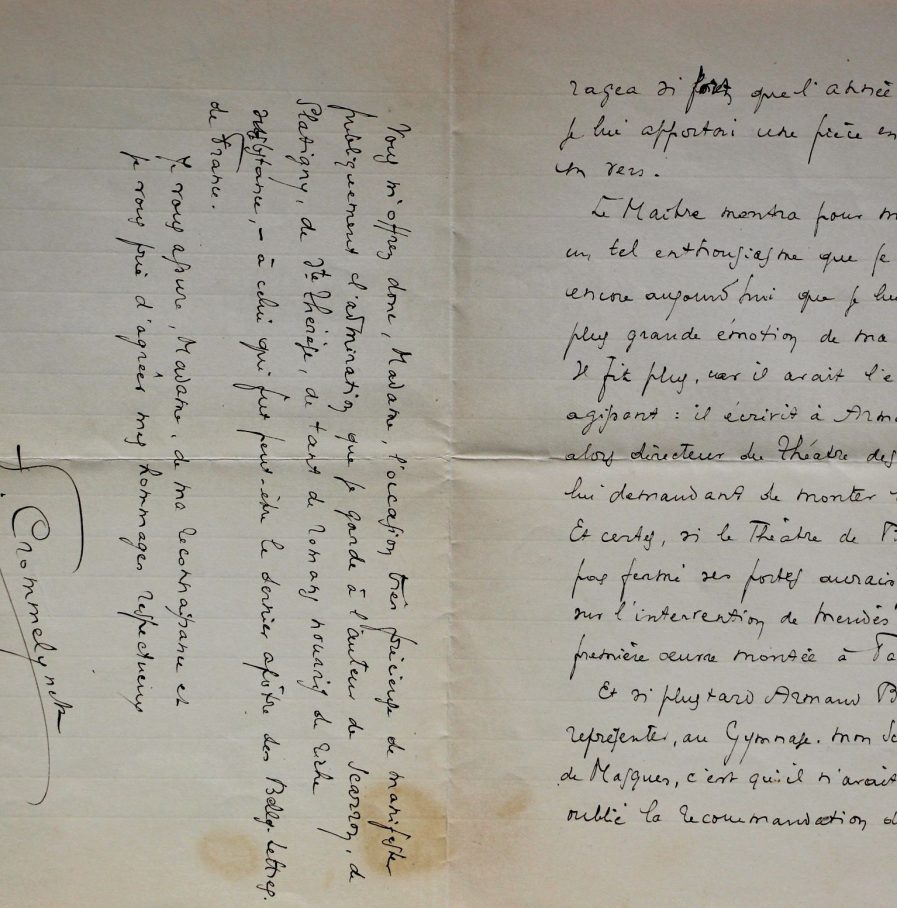 ragea si fort que l'année
je lui apportai une pièce en
en vers.
Le Maître montra pour m
un tel enthousiasme que je
encore aujourd'hui que je lui
plus grande émotion de ma
Il fit plus, car il avait l'e
agissant : il écrivit à Arma
alors directeur du Théâtre des
lui demandant de monter
Et certes, si le Théâtre de B
pas fermé ses portes aurais
sur l'intervention de Mendès
première œuvre montée à Pa
Et si plus tard Armand B
représenter, au Gymnase. mon Sc
de Masques, c'est qu'il n'avait
oublié la recommandation d
Vous m'offrez donc, Madame, l'occasion très précieuse de manifester
publiquement l'admiration que je garde à l'auteur de Scarron, de
Glatigny, de Ste Thérèse, de tant de romans nourris de riche
substance, – à celui qui fut peut-être le dernier apôtre des Belles-Lettres
de France.
Je vous assure, Madame, de ma reconnaissance et
je vous prie d'agréer mes hommages respectueux
F. Crommelynck